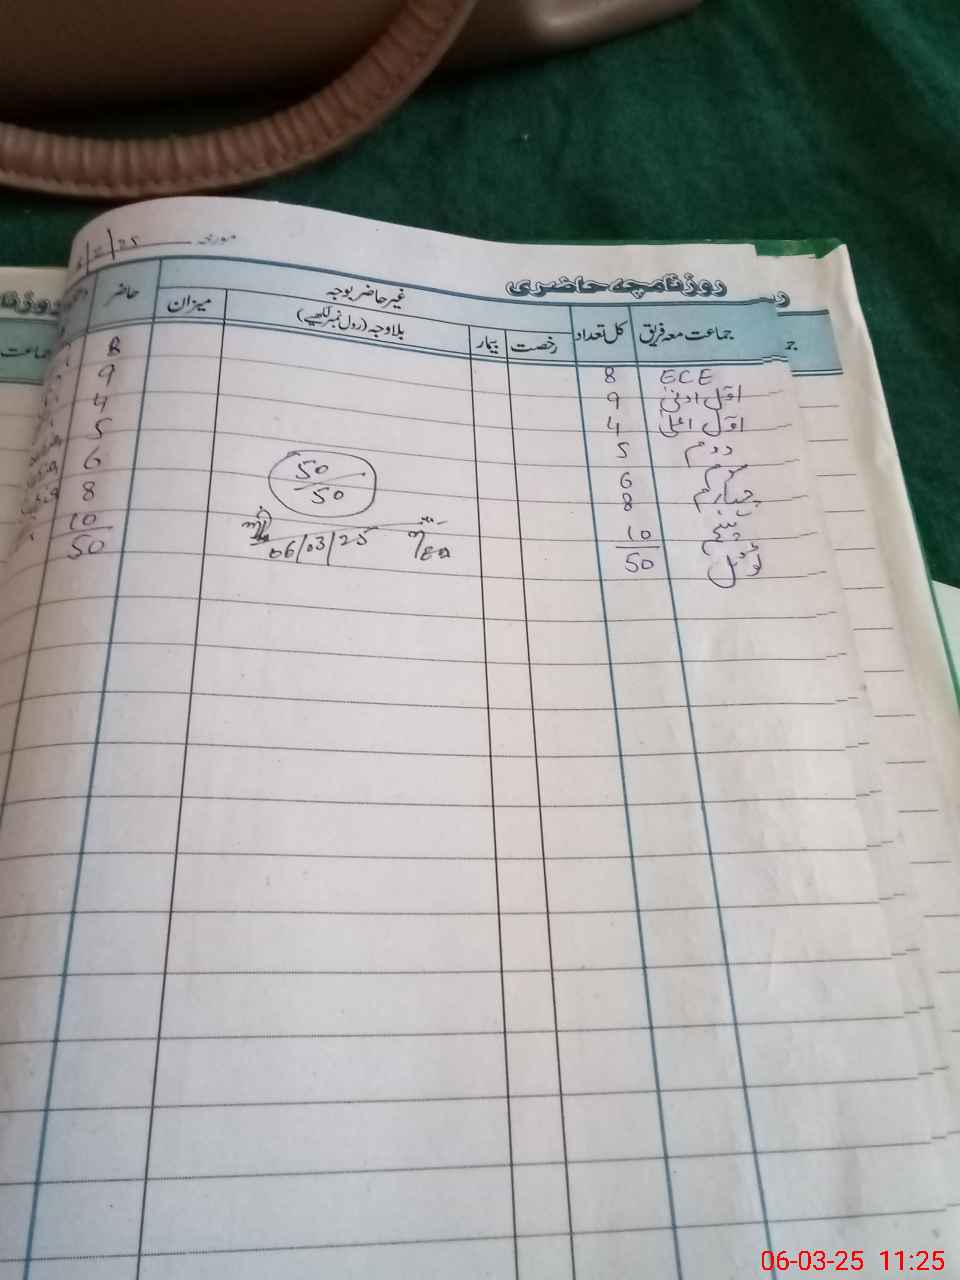 مورخہ /2/25
روزنامچہ حاضری
جماعت معہ فریق کل تعداد رخصت بیمار غیر حاضر بوجہ بلاوجہ (رول نمبر لکھیے) میزان حاضر
ECE 8 8
اول ادنیٰ 9 9
اول اعلیٰ 4 4
دوم 5 5
سوم 6 6
چہارم 8 8
پنجم 10 10
ٹوٹل 50 50
50/50
06/03/25
06-03-25 11:25